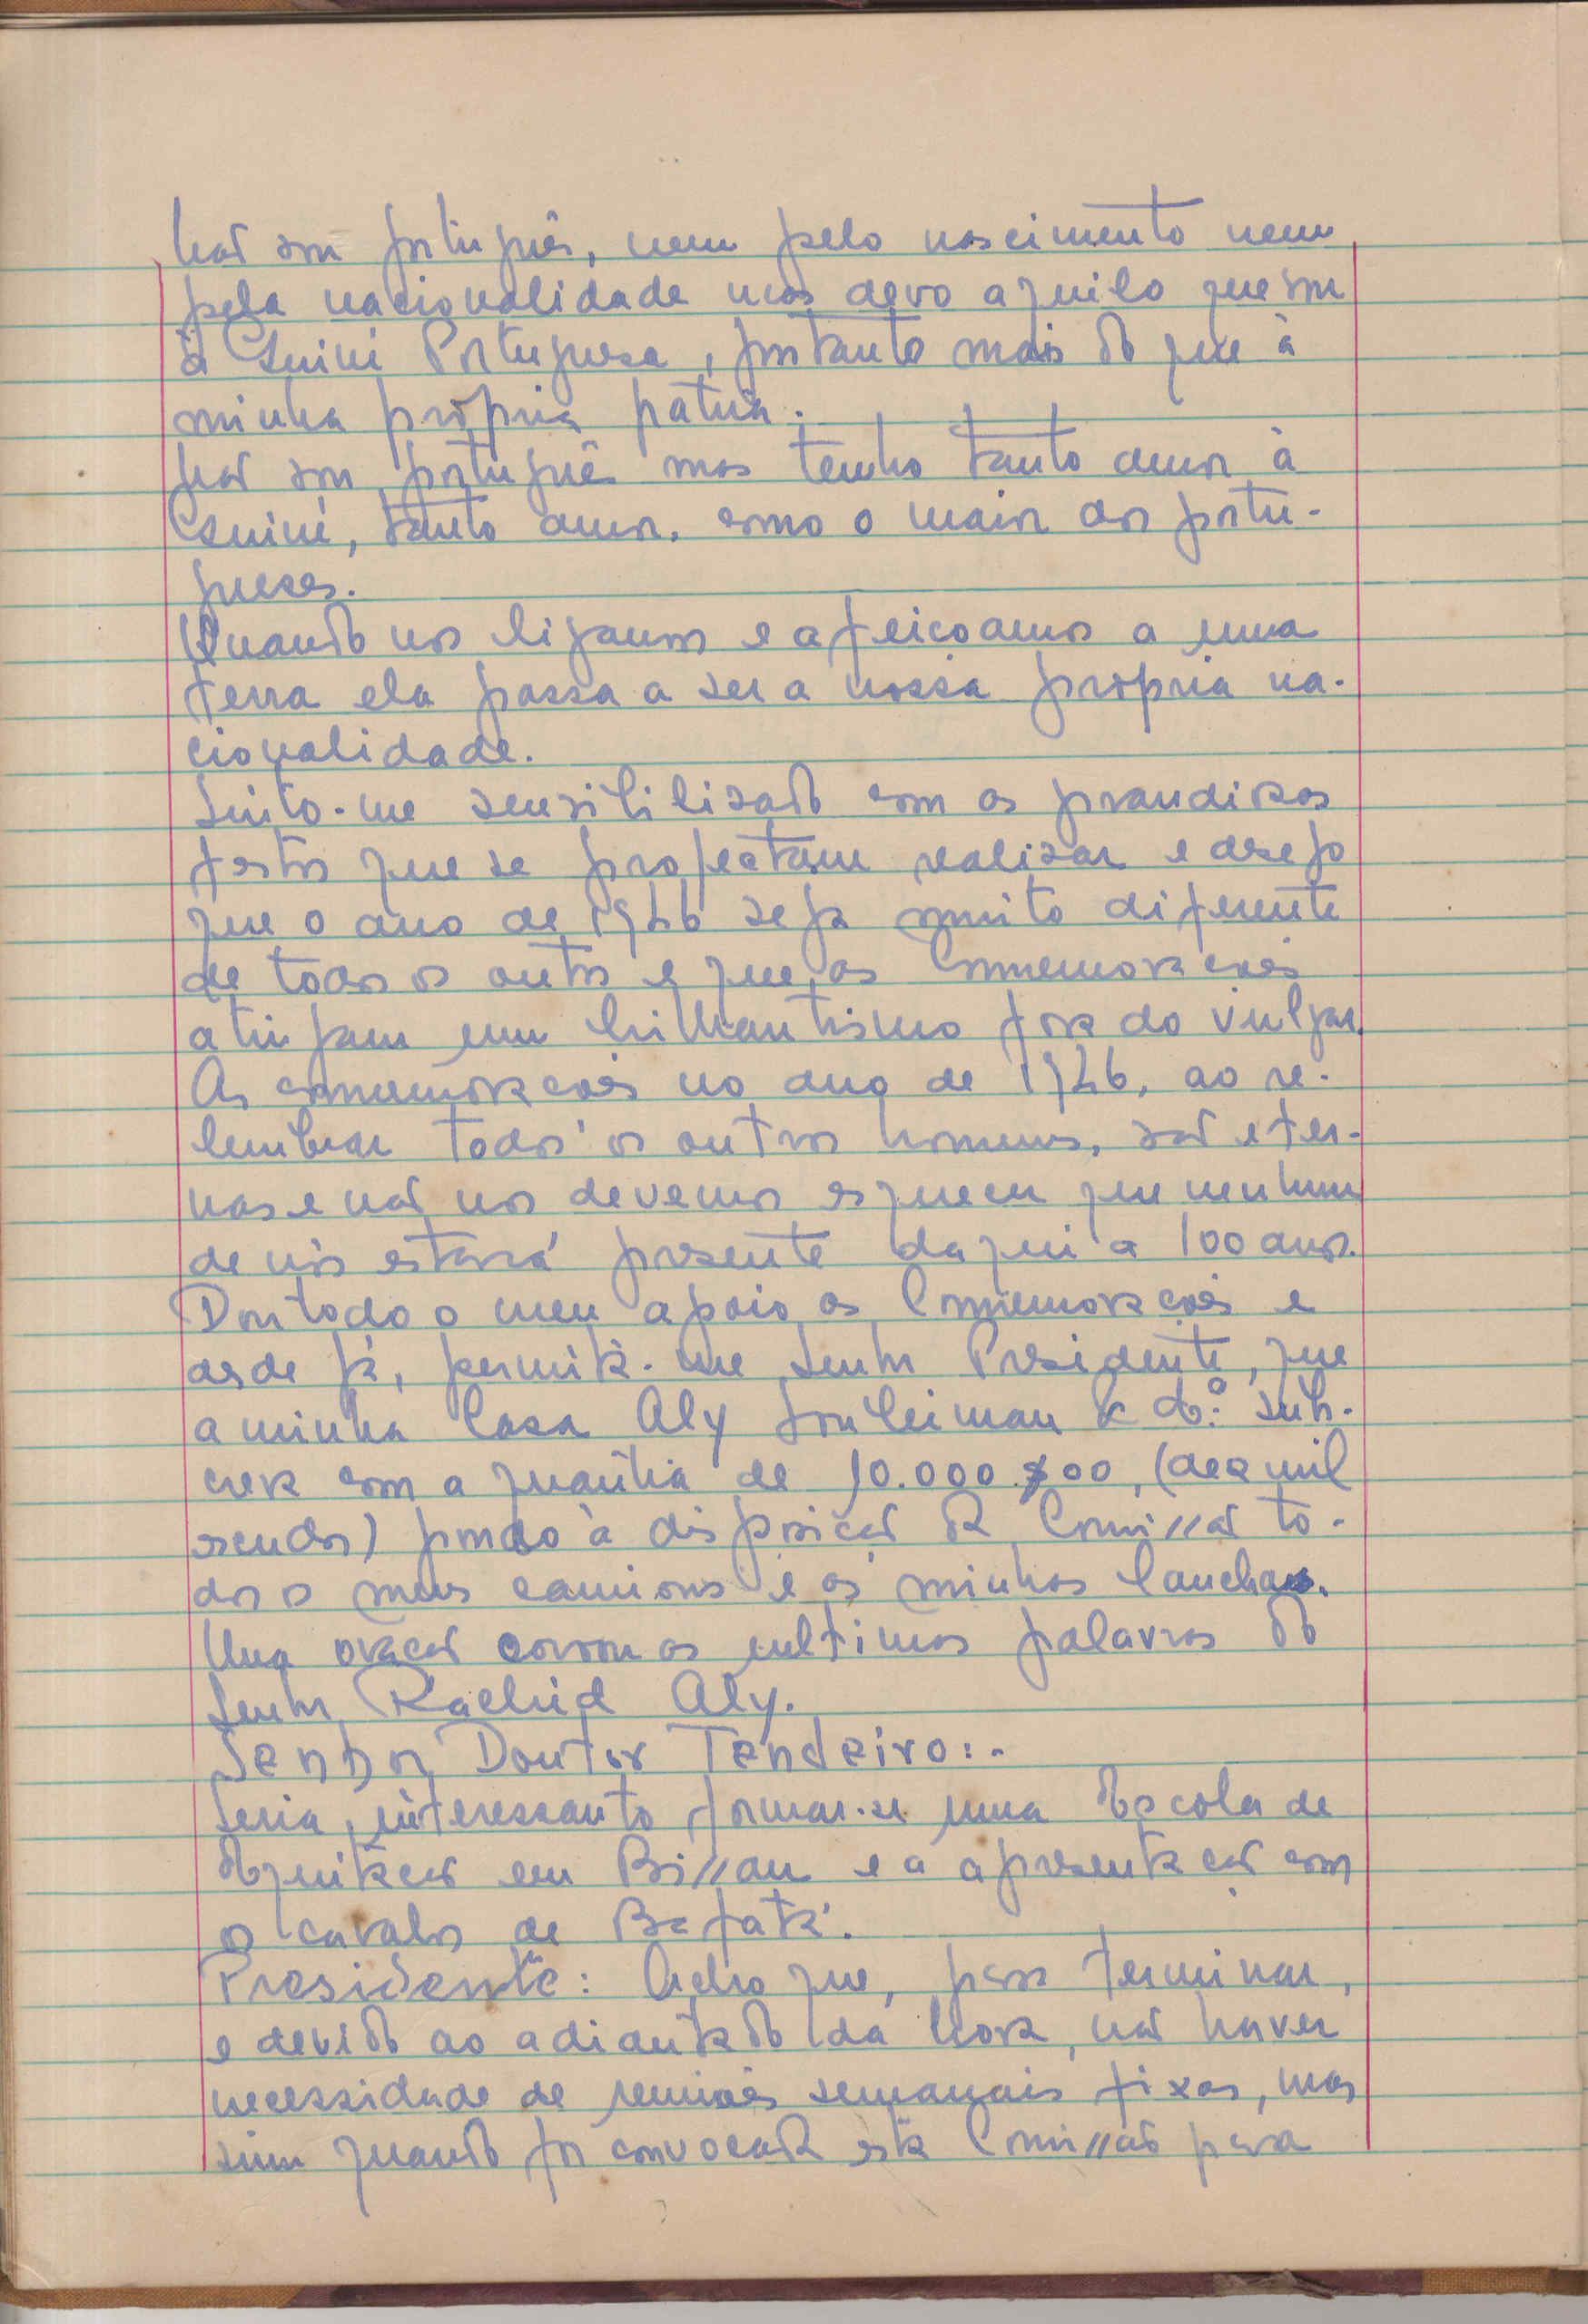 Não sou português, nem pelo nascimento nem
pela nacionalidade mas devo aquilo que sou
à Guiné Portuguesa, portanto mais do que à
minha própria pátria.
Não sou português mas tenho tanto amor à
Guiné, tanto amor, como o maior dos portu-
gueses.
Quando nos ligamos e afeiçoamos a uma
terra ela passa a ser a nossa própria na-
cionalidade.
Sinto-me sensibilisado com as grandiosas
festas que se projectam realisar e desejo
que o ano de 1946 seja muito diferente
de todos os outros e que as Comemorações
atinjam um brilhantismo fora do vulgar.
As comemorações no ano de 1946, ao re-
lembrar todos os outros homens, são eter-
nas e não nos devemos esquecer que nenhum
de nós estará presente daqui a 100 anos.
Dou todo o meu apoio às Comemorações e
desde já, permita-me Senhor Presidente, que
a minha Casa Aly Souleiman & Cº. subs-
creva com a quantia de 10.000$00, (dez mil
escudos) pondo à disposição da Comissão to-
dos os meus camions e as minhas lanchas.
Uma ovação coroou as ultimas palavras do
Senhor Rachid Aly.
Senhor Doutor Tendeiro:-
Seria interessante formar-se uma Escola de
Equitação em Bissau e a apresentação com
os cavalos de Bafatá.
Presidente: Acho que, para terminar,
e devido ao adiantado da hora, não haver
necessidade de reuniões semanais fixas, mas
sim quando for convocada esta Comissão para